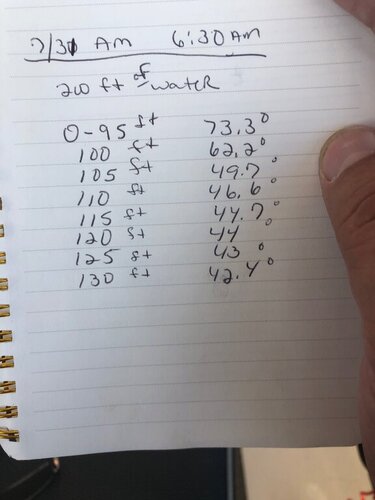 7/31 AM 6:30 AM
200 ft of water
0-95 ft 73.3°
100 ft 62.2°
105 ft 49.7°
110 ft 46.6°
115 ft 44.7°
120 ft 44°
125 ft 43°
130 ft 42.4°